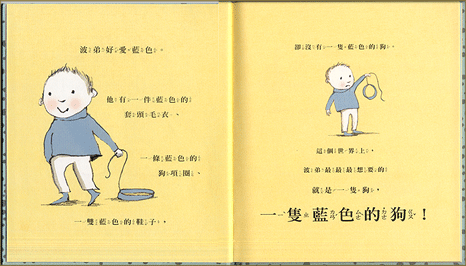 波弟好愛藍色。
他有一件藍色的
套頭毛衣、
一條藍色的
狗項圈、
一雙藍色的鞋子，
卻沒有一隻藍色的狗。
這個世界上，
波弟最最最想要的
就是一隻狗，
一隻藍色的狗！